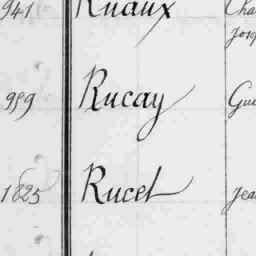 941 Ruaux Cha
Jos
959 Rucay Gui
1825 Rucet Jea